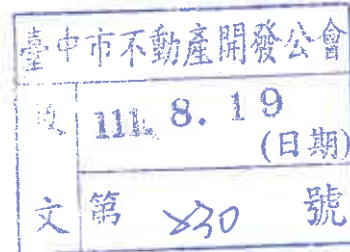 臺中市不動產開發公會
收文
111. 8. 19
(日期)
第 830 號